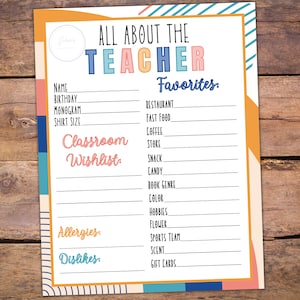 ALL ABOUT THE
TEACHER
NAME
BIRTHDAY
MONOGRAM
SHIRT SIZE
Classroom
Wishlist:
Allergies:
Dislikes:
Favorites:
RESTAURANT
FAST FOOD
COFFEE
STORE
SNACK
CANDY
BOOK GENRE
COLOR
HOBBIES
FLOWER
SPORTS TEAM
SCENT
GIFT CARDS